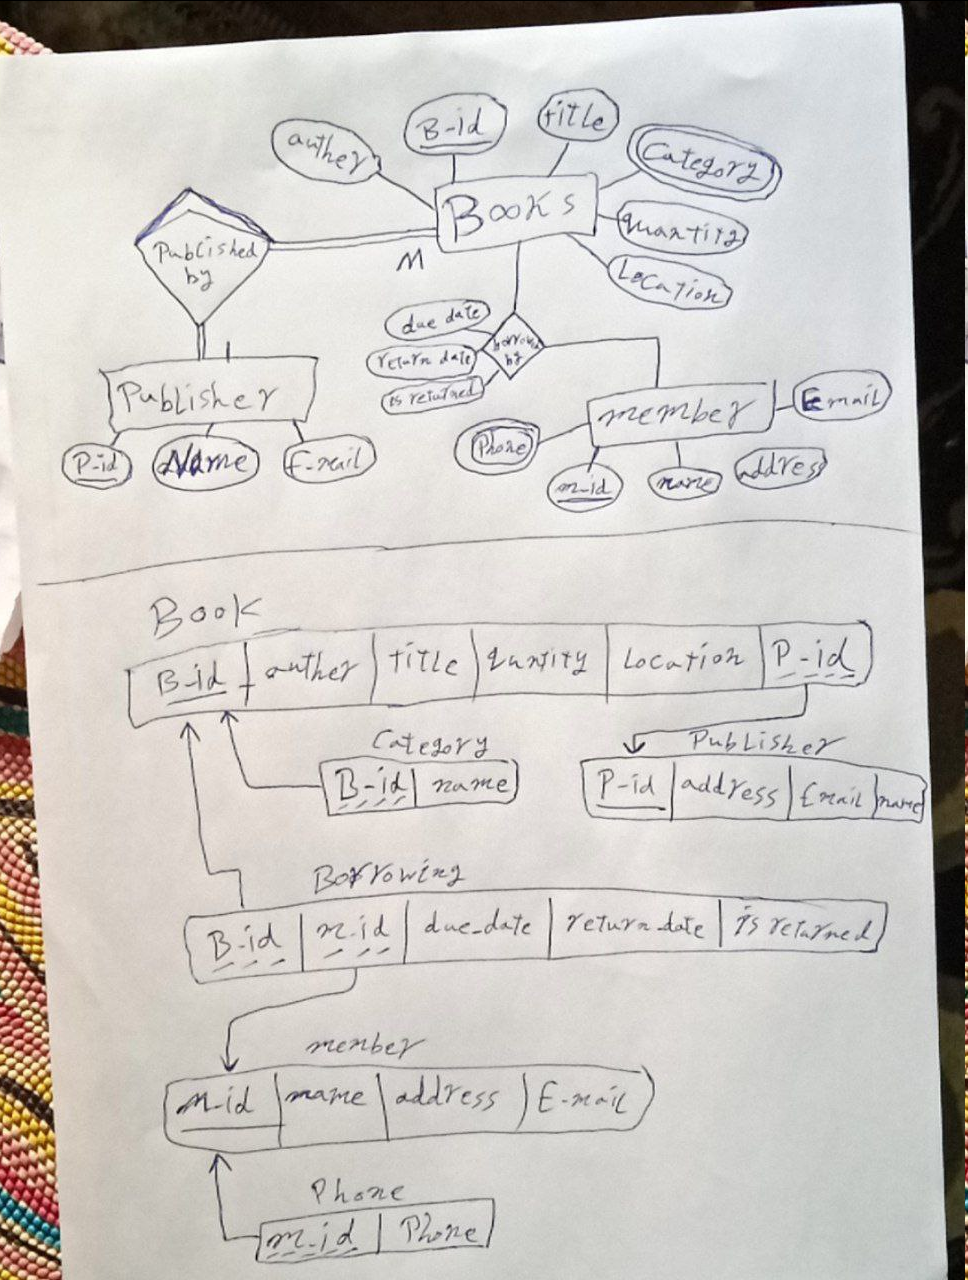 auther
B-id
title
Category
Books
quantity
Location
Published
by
M
1
due date
return date
is returned
borrowed
by
Publisher
P-id
Name
E-mail
member
Email
Phone
m-id
name
address
Book
B-id auther title quntity Location P-id
Category
B-id name
Publisher
P-id address Email name
Borrowing
B-id m-id due_date return_date is returned
member
m-id name address E-mail
Phone
m-id Phone